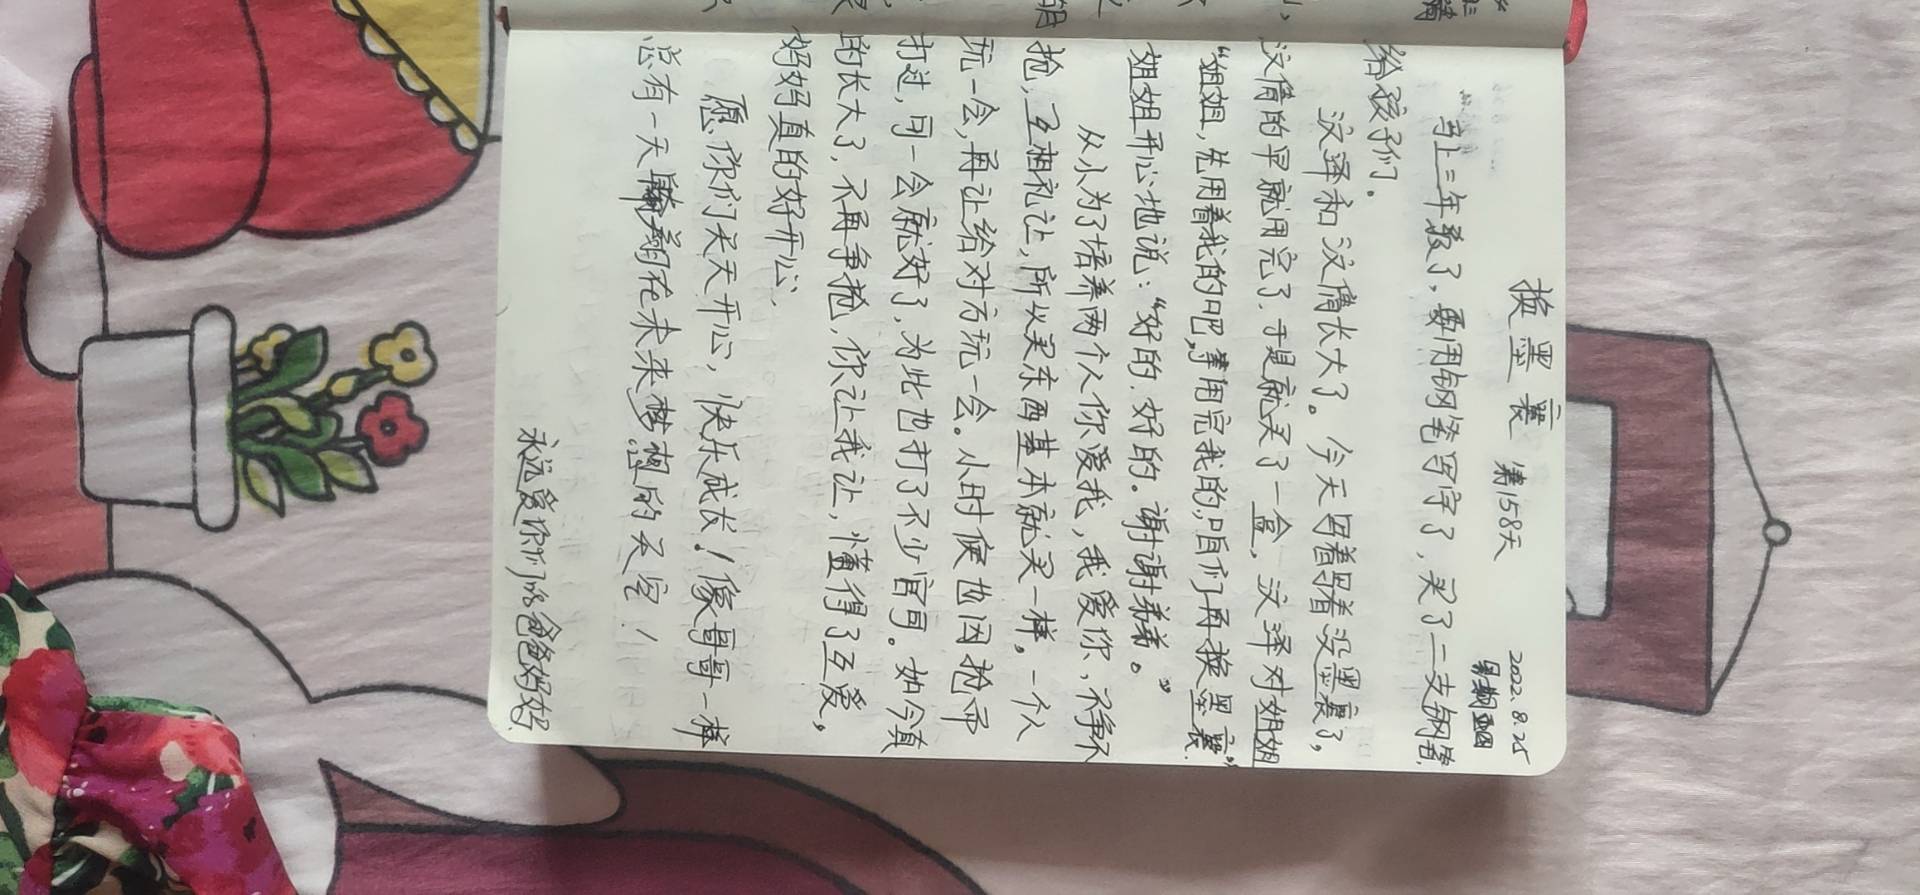 换墨囊 第158天 2022.8.25
星期四
马上三年级了,要用钢笔写字了,买了二支钢笔
给孩子们。
汶泽和汶倩长大了。今天因着墨着没墨囊了,
汶倩的早就用完了,于是就买了一盒,汶泽对姐姐
“姐姐,先用着我的吧,等用完我的,咱们再换墨囊”
姐姐开心地说:“好的.好的。谢谢弟弟。”
从小为了培养两个人你爱我,我爱你,不争不
抢,互相礼让,所以买东西基本就买一样。一个人
玩一会,再让给对方玩一会。小时候也因抢而
打过,可一会就好了,为此也打了不少官司。如今真
的长大了,不再争抢,你让我让,懂得了互爱,
妈妈真的好开心,
愿你们天天开心,快乐成长!像哥哥一样
总有一天翱翔在未来梦想的天空!
永远爱你们的爸爸妈妈